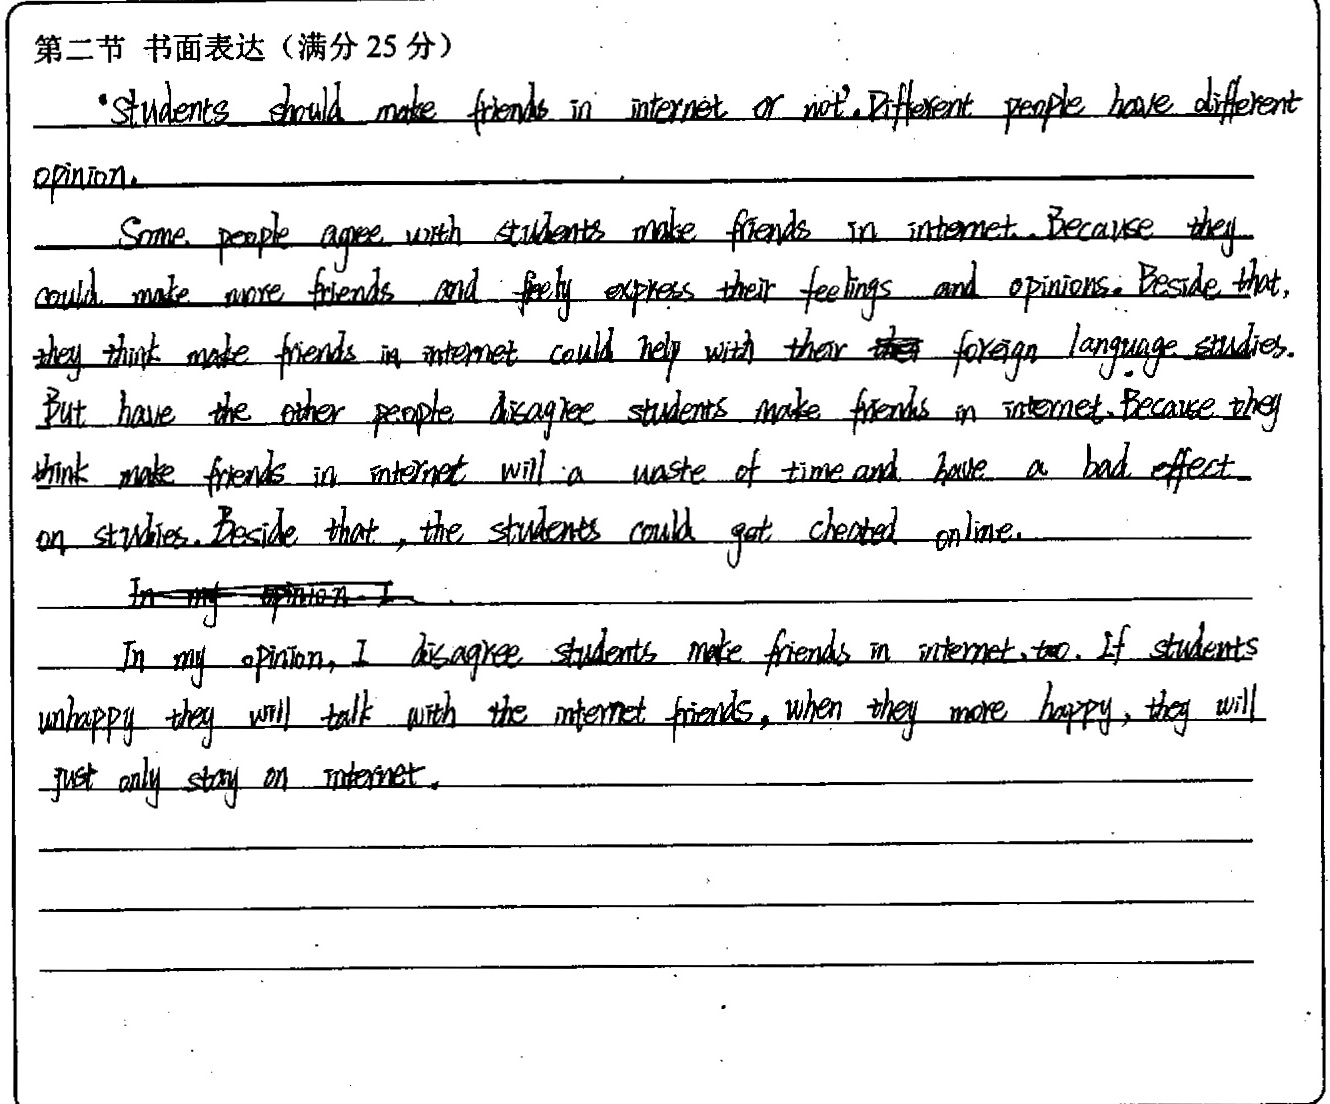 第二节 书面表达（满分 25 分）
"Students should make friends in internet or not". Different people have different
opinion.
Some people agree with students make friends in internet. Because they
could make more friends and feely express their feelings and opinions. Beside that,
they think make friends in internet could help with their foreign language studies.
But have the other people disagree students make friends in internet. Because they
think make friends in internet will a waste of time and have a bad effect
on studies. Beside that, the students could get cheated online.
In my opinion I
In my opinion, I disagree students make friends in internet, too. If students
unhappy they will talk with the internet friends, when they more happy, they will
just only stay on internet.